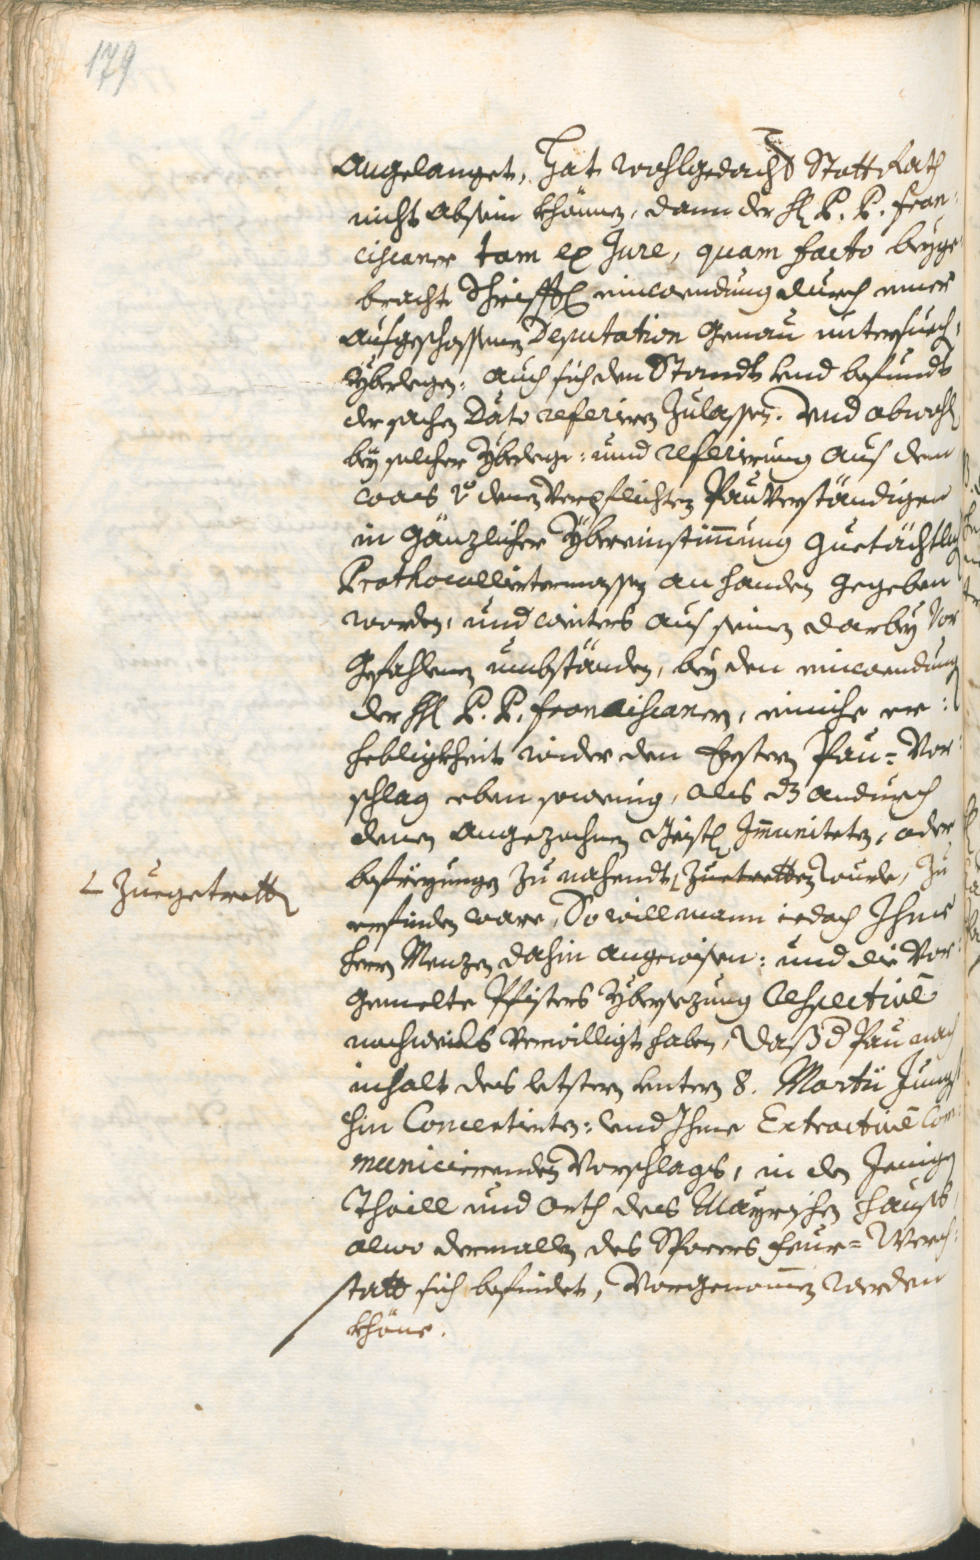 179
angelanget, hat wohlgedacht Statt Rath
nicht absein khönnen, dann der H P. P. Fran=
ciscaner tam ex Jure, quam facto beyge=
brachte Schrifft einwendung durch einer
ausgeschossenen Deputation genau untersuech=
Yberlegen: auch sich den Standt und befundt
der sachen Dato referiren Zulassen. Und obwohl
bey solcher Yberleg= und referierung aus dem
was v denen Verpflichten Pauverständigen
in gänzlicher Ybereinstimmung guetächtlich
Prothocolliertermassen an handen gegeben
worden, und weiters aus seinen darbey vor
gefahlenen umbständen, bey den einwendung
der HH P. P. Franciscanern, einiche er=
hebligkheit wider den Ersten Pau= Vor=
schlag eben sowenig, als dz andurch
denen angezochnen Geistl Immuniteten, oder
befreyungen zu nahendt zuetretten wurde, zu
∟ Zuegetretten
erfinden ware, So will mann iedoch Ihme
Herrn Menzen dahin angewisen: und die Vor=
gemelte Pfisters Ybersezung Respective
nachwerts verwilligt haben, daß d Pau nach
inhalt des letstern untern 8. Martii Jüngst
hin Concertirten: und Ihme Extractive Com=
municierenden Vorschlags, in den Jenigen
Thaill und orth des Mayrischen haußes,
alwo dermallen des Sporers Feur= Werch=
statt sich befindet, Vorgenommen werden
khöne.